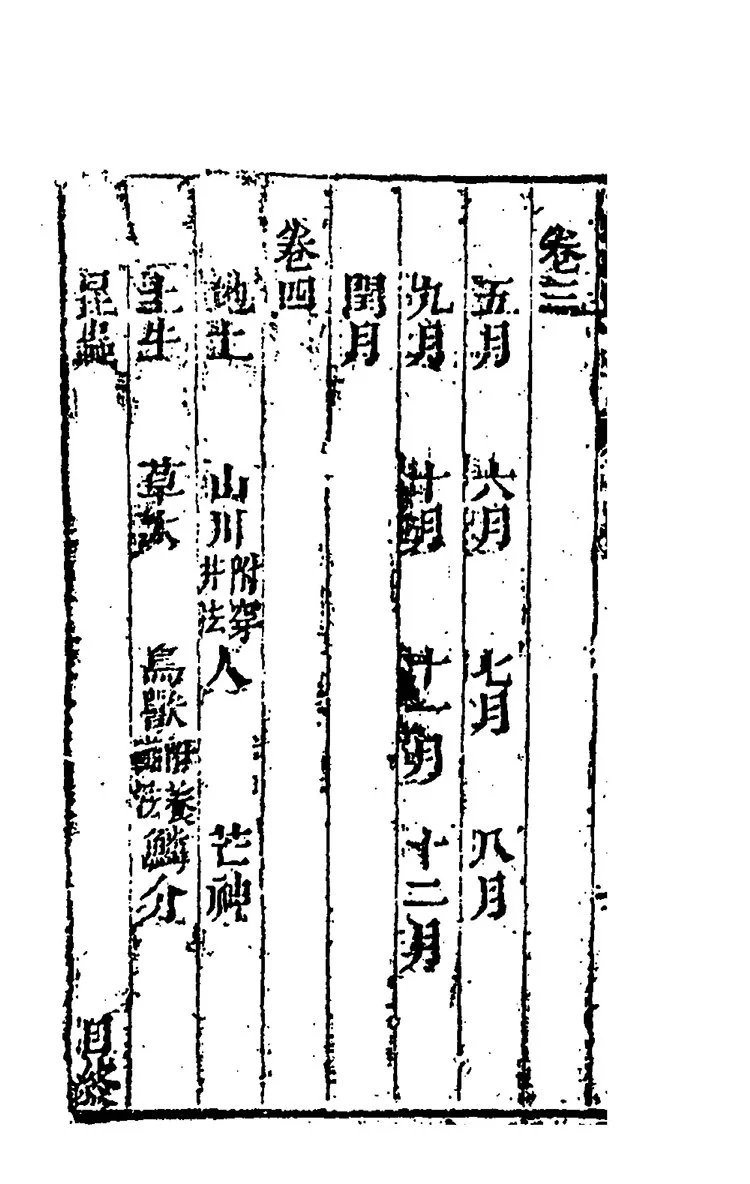 卷三
五月 六月 七月 八月
九月 十月 十一月 十二月
閏月
卷四
地土 山川 附穿井法 人 芒神
土牛 草木 鳥獸 附養法 鱗介
昆蟲 目終